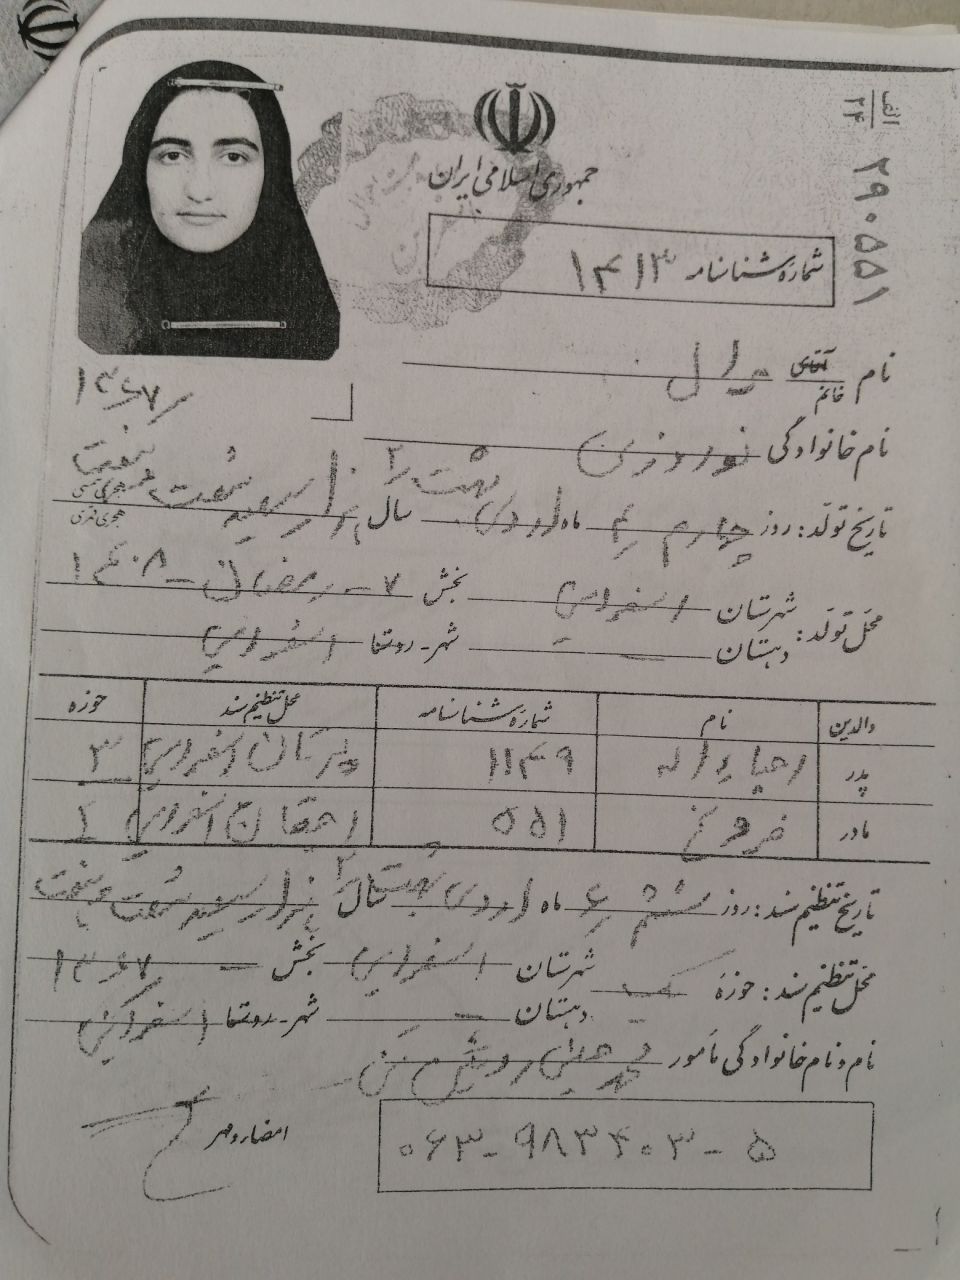 الف
۲۴
۲۹۰۵۵۱
جمهوری اسلامی ایران
شماره شناسنامه ۱۴۱۳
نام آقای
خانم
۱۳۶۷/
نام خانوادگی نوروزی
تاریخ تولد: روز چهارم ۴ ماه اردیبهشت ۲ سال هزار سیصد شصت هفت هجری شمسی
هجری قمری
محل تولد: شهرستان اسفراین بخش ۷ - رمضان - ۱۴۰۸
دهستان — شهر - روستا اسفراین
والدین نام شماره شناسنامه محل تنظیم سند حوزه
پدر ۱۱۴۹ اسفراین ۳
مادر فروغ ۵۵۱ اسفراین
تاریخ تنظیم سند: روز ششم ۶ ماه اردیبهشت ۲ سال هزار سیصد شصت و هفت
محل تنظیم سند: حوزه یک شهرستان اسفراین بخش — ۱۳۶۷
دهستان — شهر - روستا اسفراین
نام و نام خانوادگی مأمور
امضاء و مهر
۰۶۳-۹۸۳۴۰۳-۵